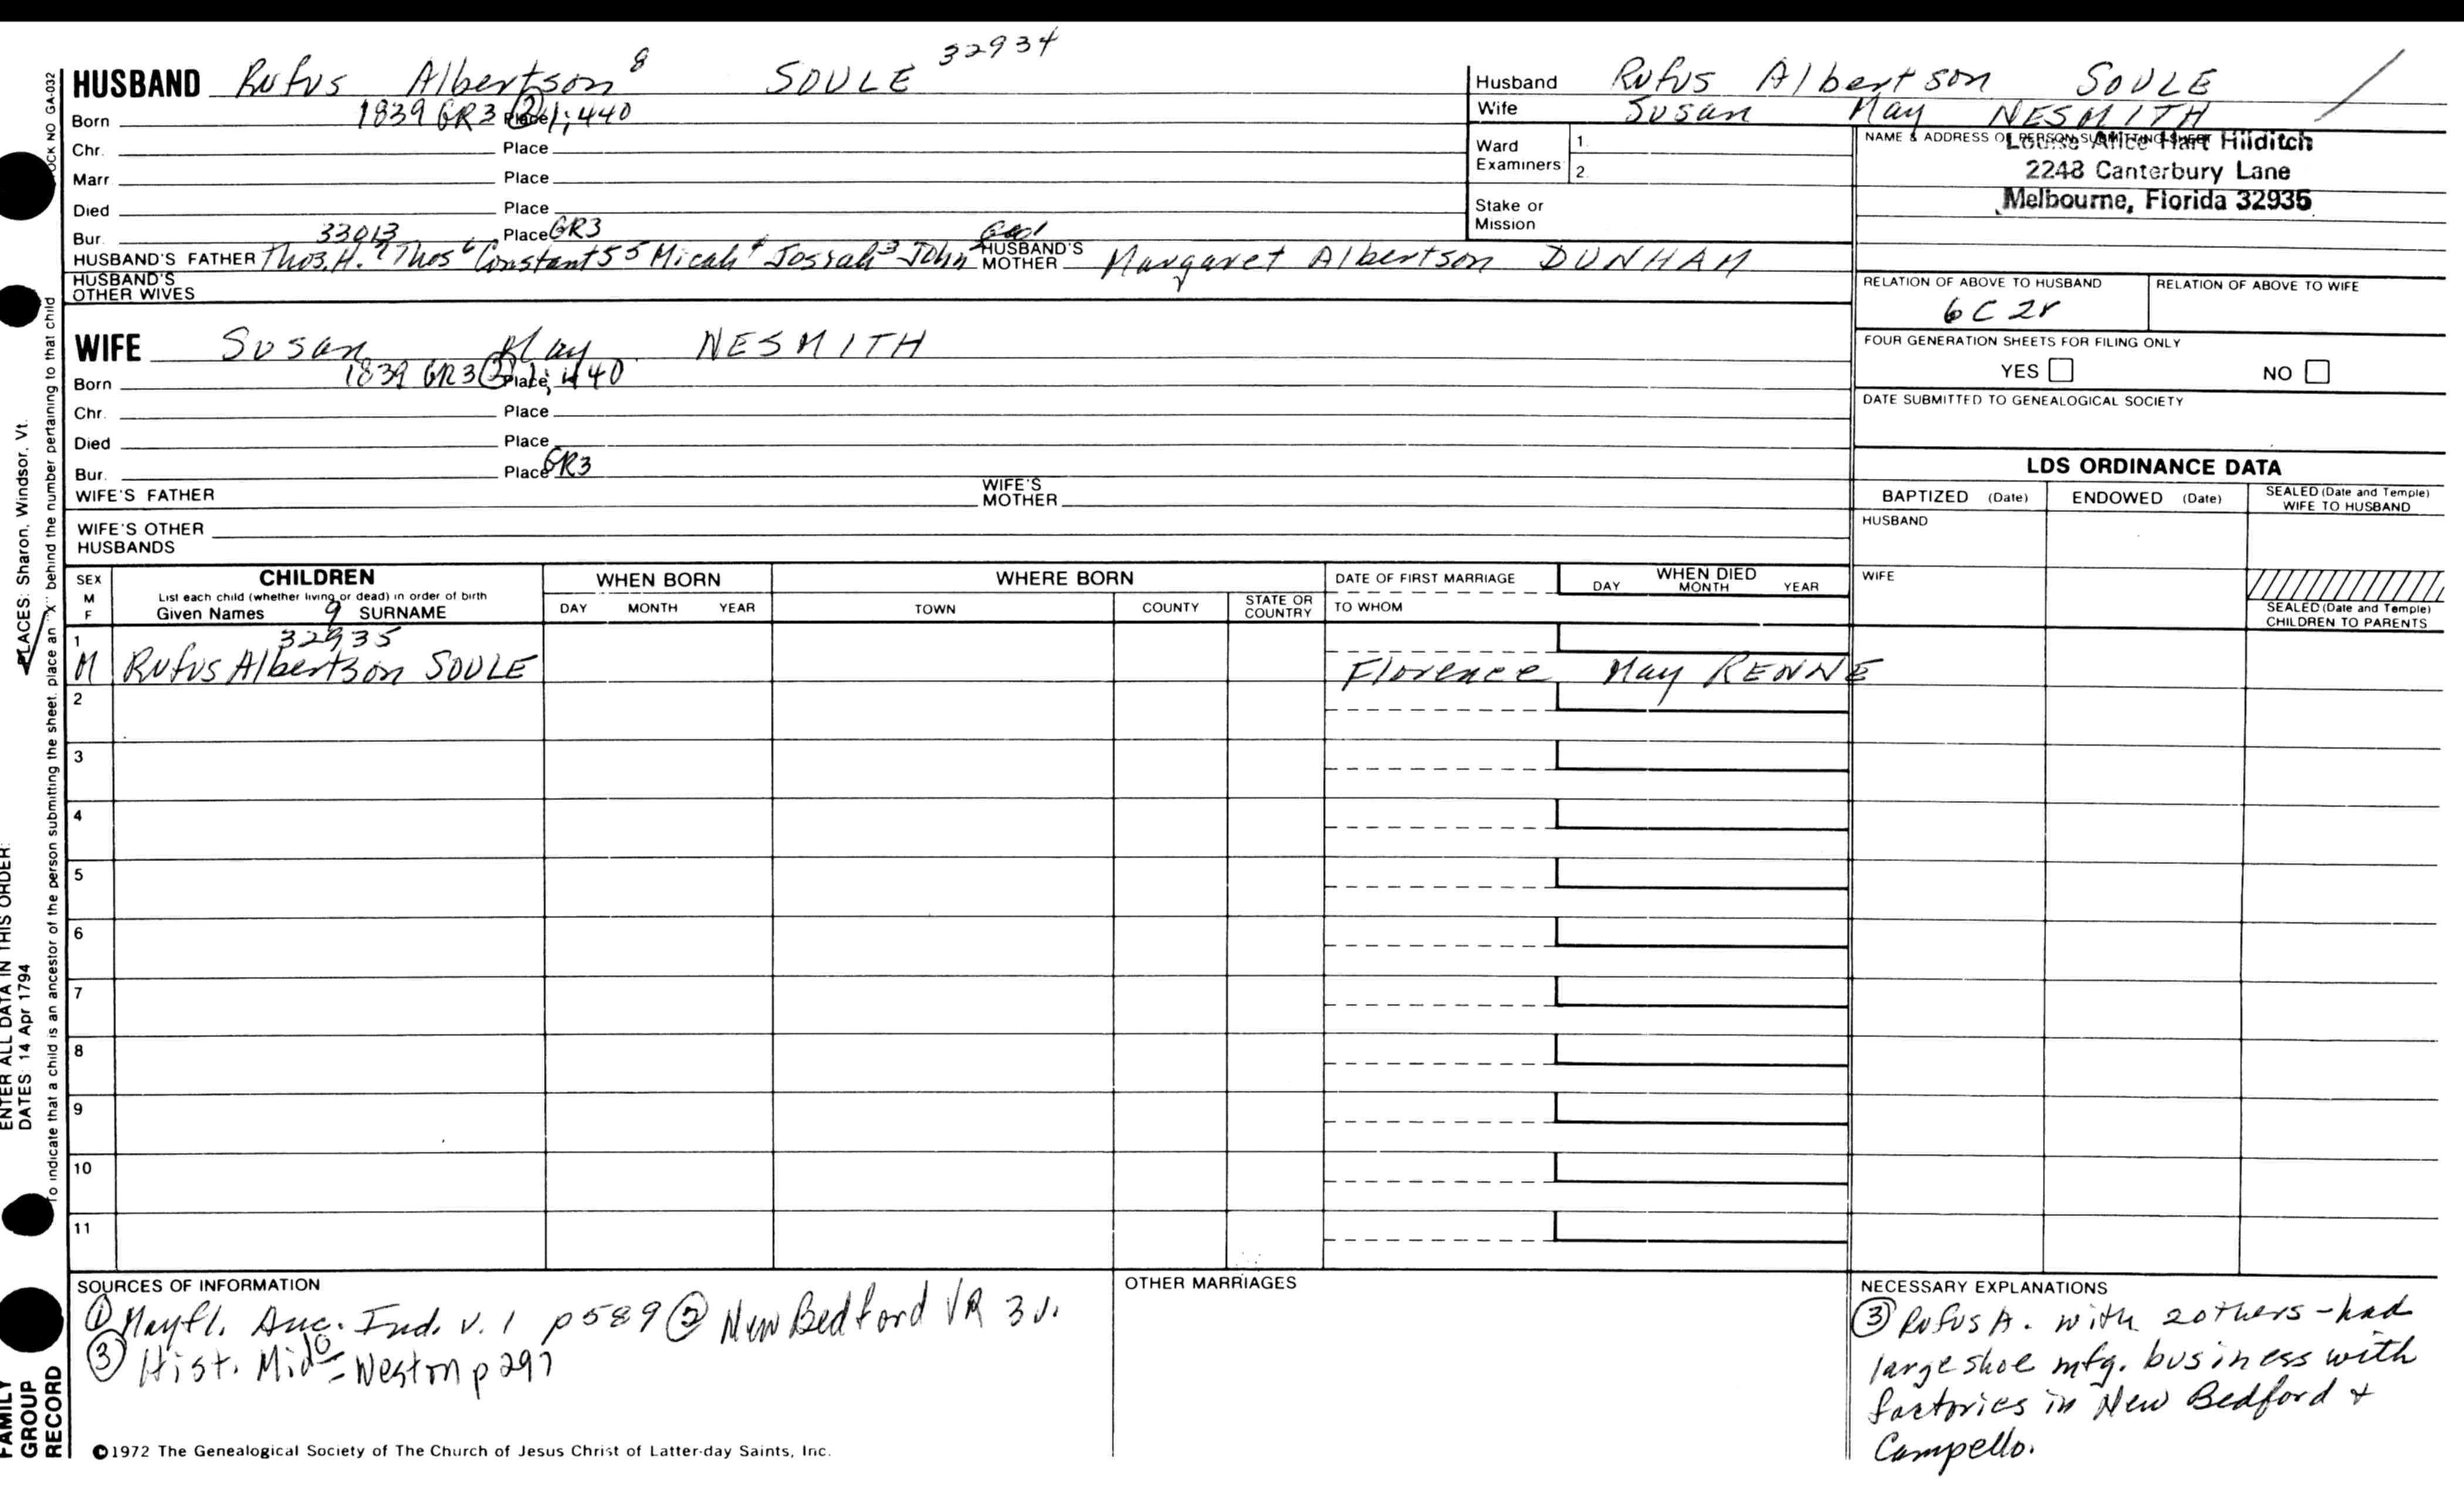 32934
HUSBAND Rufus Albertson 8 SOULE
Born 1839 GR3 (2) 1;440 Place
Chr. Place
Marr. Place
Died Place
Bur. Place GR3
33013
HUSBAND'S FATHER Thos. H.7 Thos6 Constant5 5 Micah4 Josiah3 John2 HUSBAND'S MOTHER Margaret Albertson DUNHAM
HUSBAND'S OTHER WIVES
WIFE Susan May NESMITH
Born 1839 GR3 (2) 1; 440 Place
Chr. Place
Died Place
Bur. Place GR3
WIFE'S FATHER WIFE'S MOTHER
WIFE'S OTHER HUSBANDS
Husband Rufus Albertson SOULE
Wife Susan May NESMITH
Ward Examiners 1. 2.
Stake or Mission
NAME & ADDRESS OF PERSON SUBMITTING SHEET
Louise Alice Hart Hilditch
2248 Canterbury Lane
Melbourne, Florida 32935
RELATION OF ABOVE TO HUSBAND RELATION OF ABOVE TO WIFE
6C 2r
FOUR GENERATION SHEETS FOR FILING ONLY
YES NO
DATE SUBMITTED TO GENEALOGICAL SOCIETY
LDS ORDINANCE DATA
BAPTIZED (Date) ENDOWED (Date) SEALED (Date and Temple) WIFE TO HUSBAND
HUSBAND
WIFE
SEALED (Date and Temple) CHILDREN TO PARENTS
SEX M F CHILDREN WHEN BORN WHERE BORN DATE OF FIRST MARRIAGE WHEN DIED
List each child (whether living or dead) in order of birth
Given Names 9 SURNAME DAY MONTH YEAR TOWN COUNTY STATE OR COUNTRY TO WHOM DAY MONTH YEAR
32935
1 M Rufus Albertson SOULE Florence May RENNE
2
3
4
5
6
7
8
9
10
11
SOURCES OF INFORMATION
(1) Mayfl. Anc. Ind. v. 1 p589 (2) New Bedford VR 3 v.
(3) Hist. Mido - Weston p 297
OTHER MARRIAGES
NECESSARY EXPLANATIONS
(3) Rufus A. with 2 others - had
large shoe mfg. business with
factories in New Bedford +
Campello.
©1972 The Genealogical Society of The Church of Jesus Christ of Latter-day Saints, Inc.
FAMILY GROUP RECORD
ENTER ALL DATA IN THIS ORDER:
DATES: 14 Apr 1794
PLACES: Sharon, Windsor, Vt.
To indicate that a child is an ancestor of the person submitting the sheet, place an "X" behind the number pertaining to that child
OCK NO GA-032